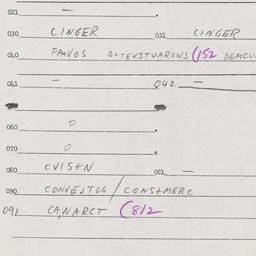 021 —
030 CINGER 031 CINGER
040 FAVOS SUTEKSTUAROWS (152 DEMCU
041 — 042 —
060 0
070 0
080 CVISTN 081 —
090 CONVEJTOG / CONSTMERC
091 CA,NARCT (812